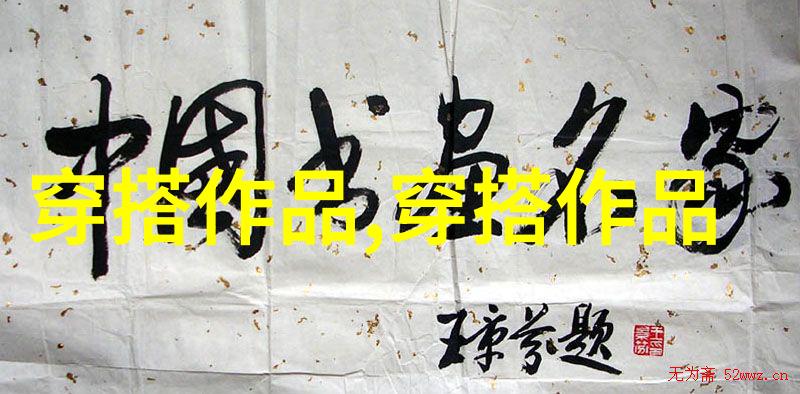 中国书画名家
穿搭作品,穿搭作品
王京芬题
无为斋 52wwz.cn